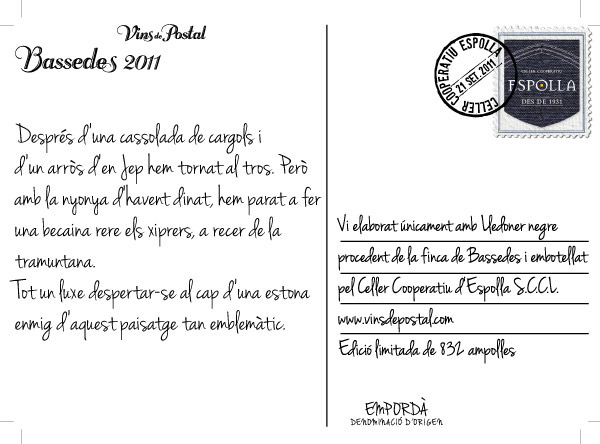 Vins de Postal
Bassedes 2011
Després d'una cassolada de cargols i
d'un arròs d'en Jep hem tornat al tros. Però
amb la nyonya d'havent dinat, hem parat a fer
una becaina rere els xiprers, a recer de la
tramuntana.
Tot un luxe despertar-se al cap d'una estona
enmig d'aquest paisatge tan emblemàtic.
CELLER COOPERATIU ESPOLLA
21 SET. 2011
CELLER COOPERATIU
ESPOLLA
DES DE 1931
Vi elaborat únicament amb Lledoner negre
procedent de la finca de Bassedes i embotellat
pel Celler Cooperatiu d'Espolla S.C.C.L.
www.vinsdepostal.com
Edició limitada de 832 ampolles
EMPORDÀ
DENOMINACIÓ D'ORIGEN